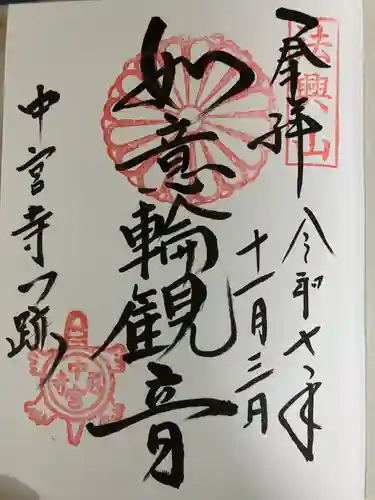 法興山
奉拝
令和七年
十一月三日
如意輪観音
中宮寺門跡
中宮